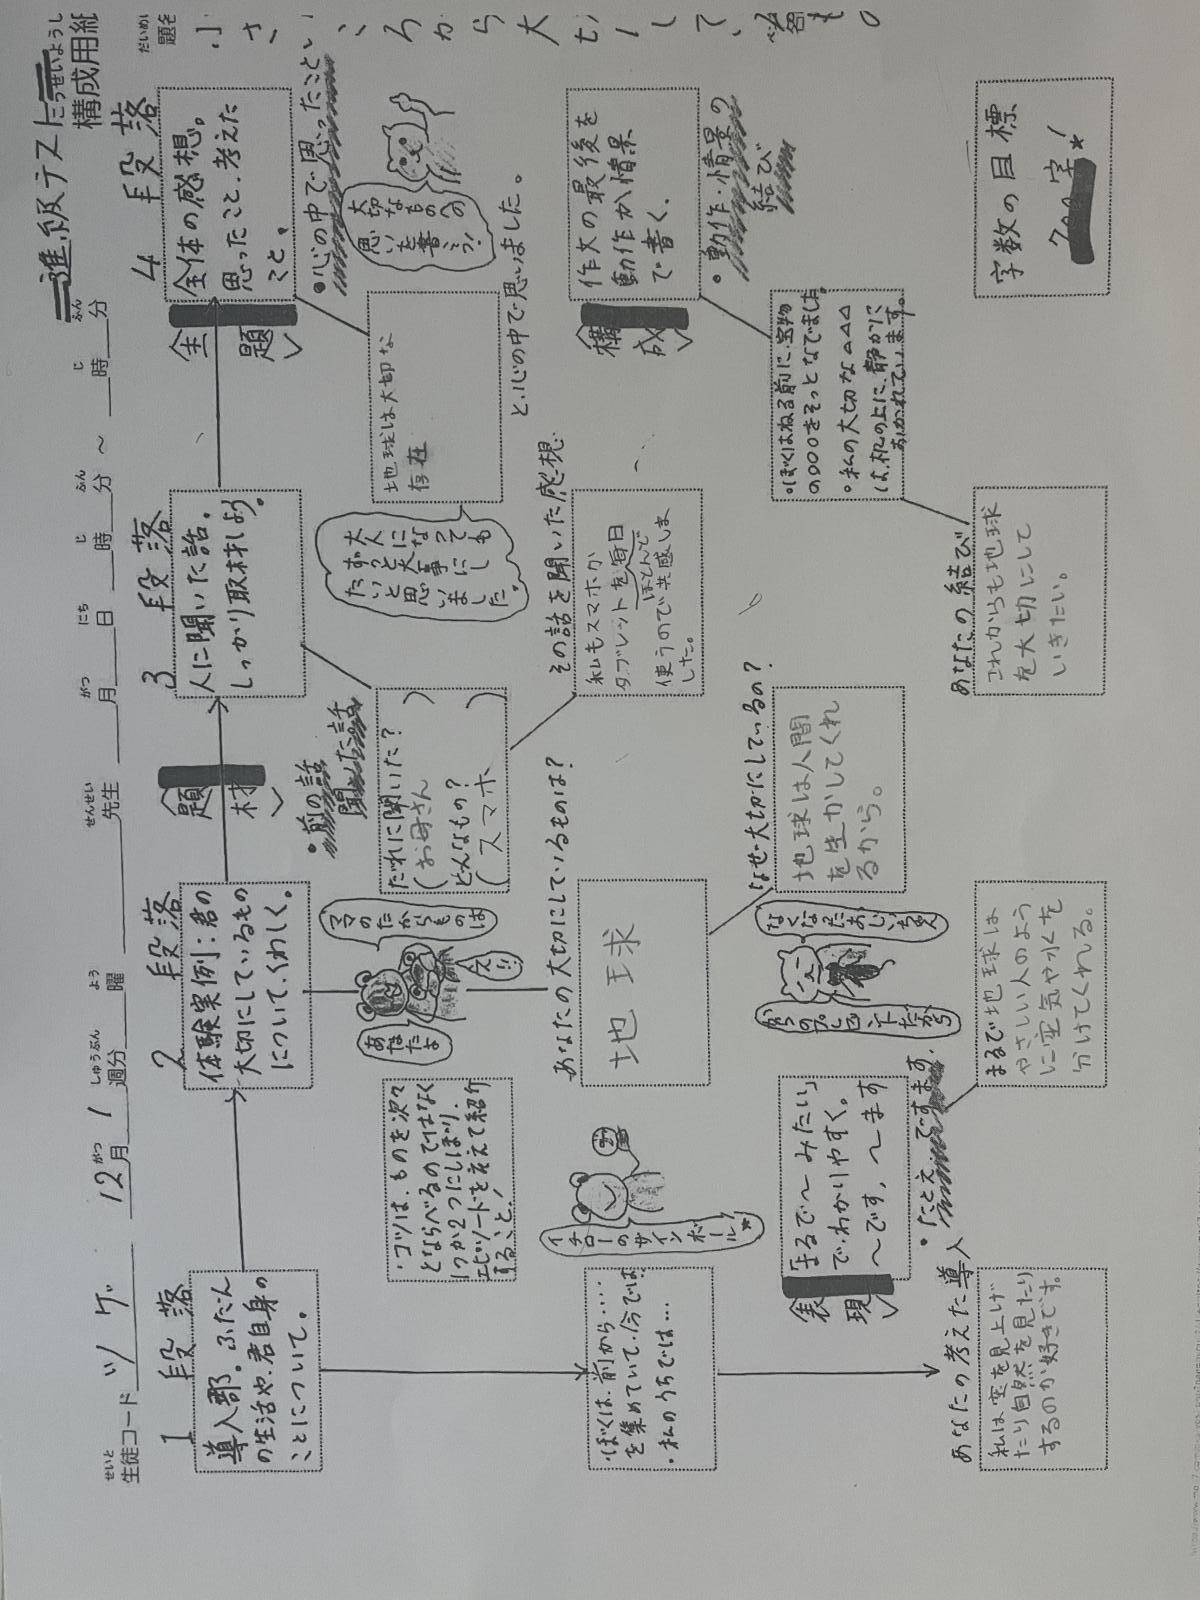 進級テスト
こうせいようし
構成用紙
せいと
生徒コード ツゲ
がつ
12月
しゅうぶん
1週分
よう
曜
せんせい
先生
がつ
月
にち
日
じ
時
ふん
分
～
じ
時
ふん
分
だいめい
題名
小さいころから大切にして
いるもの
1段落
導入部。ふだん
の生活や、君自身の
ことについて。
・ぼくは、前から……
を集めていて、今では…
・私のうちでは…
あなたの考えた導入
私は空を見上げ
たり自然を見たり
するのが好きです。
2段落
体験実例:君の
大切にしているもの
について、くわしく。
〈題材〉
・コツは、ものを次々
とならべるのではなく
1つか2つにしぼり、
エピソードを交えて紹介
すること!
ママのたからものは
あなたよ
え!!
イチローのサインボール!
あなたの大切にしているものは?
地球
なぜ大切にしているの?
地球は人間
を生かしてくれ
るから。
なくなったおじいちゃん
からのプレゼントだから
〈表現〉
「まるで～みたい」
で、わかりやすく。
～です、～ます
・たとえ
ですます
まるで地球は
やさしい人のよう
に空気や水を
分けてくれる。
3段落
人に聞いた話。
しっかり取材しよう。
・前の話
聞いた話
だれに聞いた?
(お母さん )
どんなもの?
(スマホ )
大人になっても
ずっと大事にし
たいと思い
ました。
その話を聞いた感想
私もスマホか
タブレットを毎日
ほとんど
使うので共感しま
した。
4段落
全体の感想。
思ったこと、考えた
こと。
〈主題〉
・心の中で思ったこと
大切なものへの
思いを書こう!
地球は大切な
存在
と、心の中で思いました。
〈構成〉
作文の最後を
動作か情景
で書く。
・動作・情景の
結び
・ぼくはねる前に、宝物
の○○○をそっとなでました。
・私の大切な△△△
は、机の上に、静かに
おかれています。
あなたの結び
これからも地球
を大切にして
いきたい。
字数の目標
字!